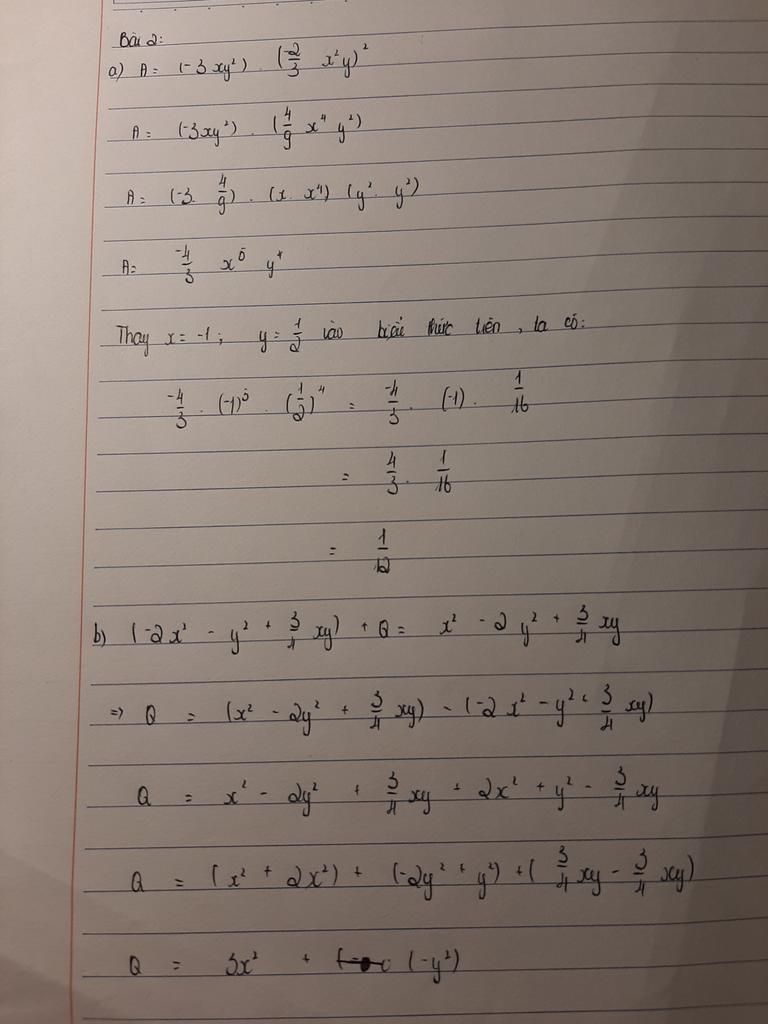 Bài 2:
a) A = (-3xy²) . (-2/3 x²y)²
A = (-3xy²) . (4/9 x⁴ y²)
A = (-3 . 4/9) . (x . x⁴) (y² . y²)
A = -4/3 x⁵ y⁴
Thay x = -1; y = 1/2 vào biểu thức trên, ta có:
-4/3 . (-1)⁵ . (1/2)⁴ = -4/3 . (-1) . 1/16
= 4/3 . 1/16
= 1/12
b) (-2x² - y² + 3/4 xy) + Q = x² - 2y² + 3/4 xy
=> Q = (x² - 2y² + 3/4 xy) - (-2x² - y² + 3/4 xy)
Q = x² - 2y² + 3/4 xy + 2x² + y² - 3/4 xy
Q = (x² + 2x²) + (-2y² + y²) + (3/4 xy - 3/4 xy)
Q = 3x² + (-y²)